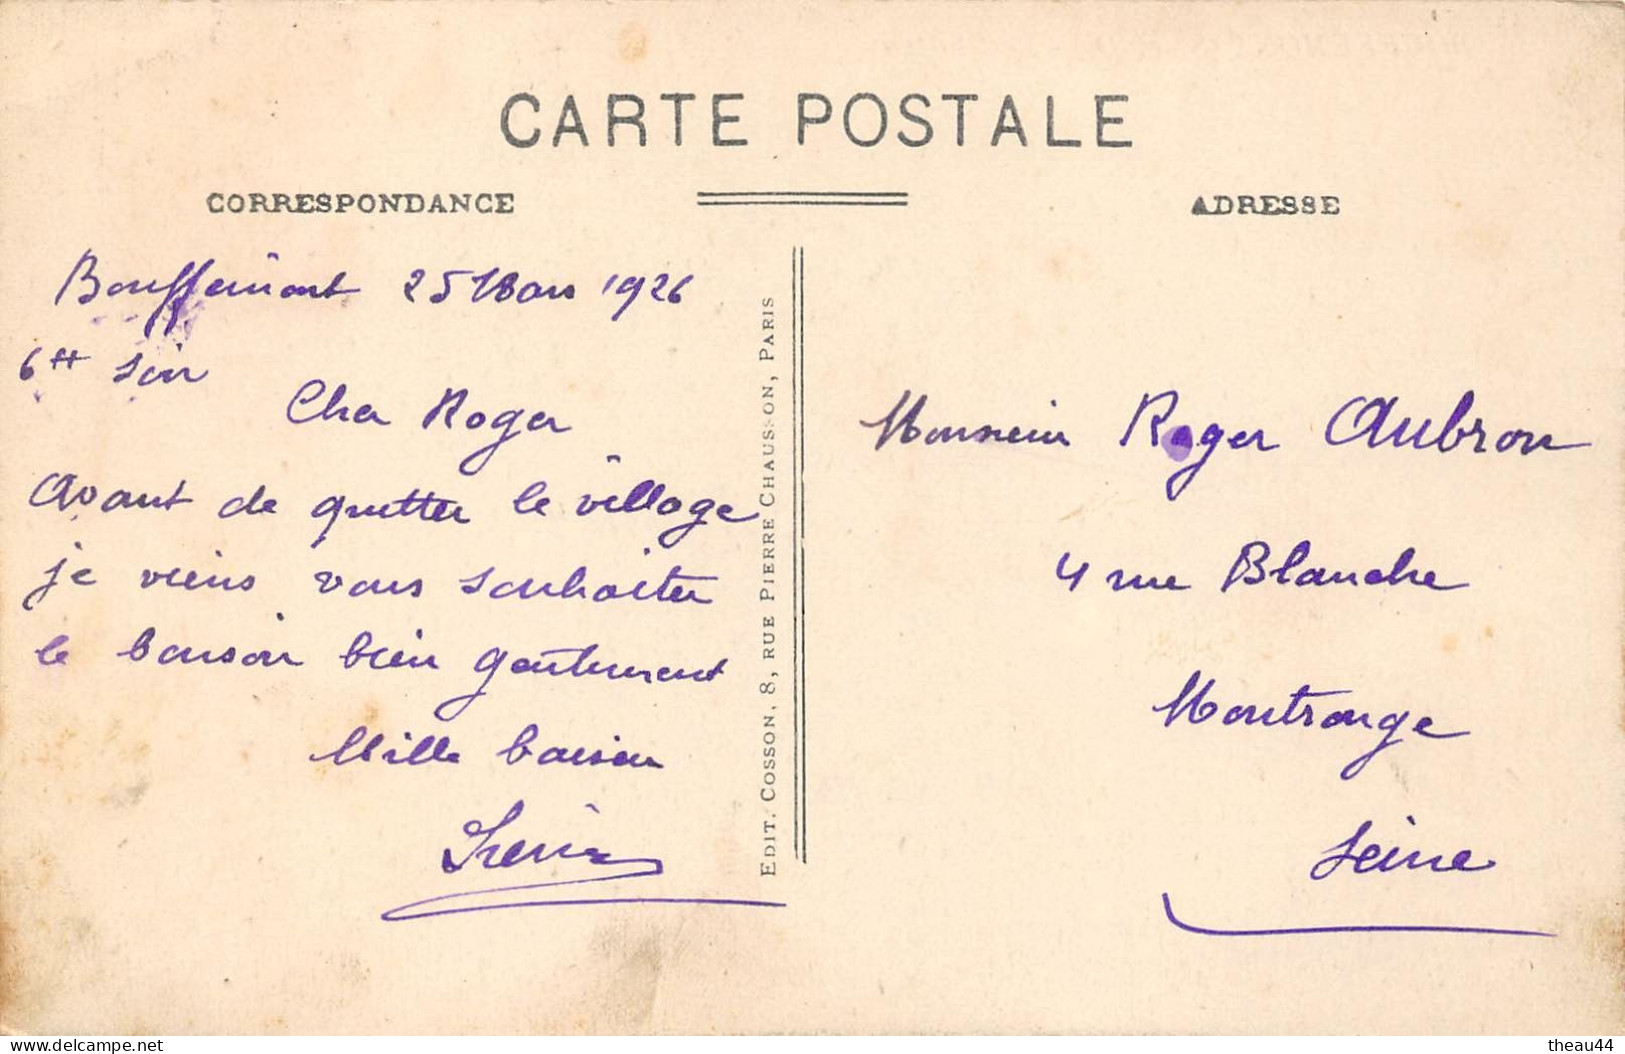 CARTE POSTALE
CORRESPONDANCE
ADRESSE
Bouffémont 25 Mars 1926
6H soir
Cher Roger
Avant de quitter le village
je viens vous souhaiter
le bonsoir bien gentiment
Mille baisers
EDIT. COSSON, 8, RUE PIERRE CHAUSSON, PARIS
Monsieur Roger Aubron
4 rue Blanche
Montrouge
Seine
Delcampe.net
theau44